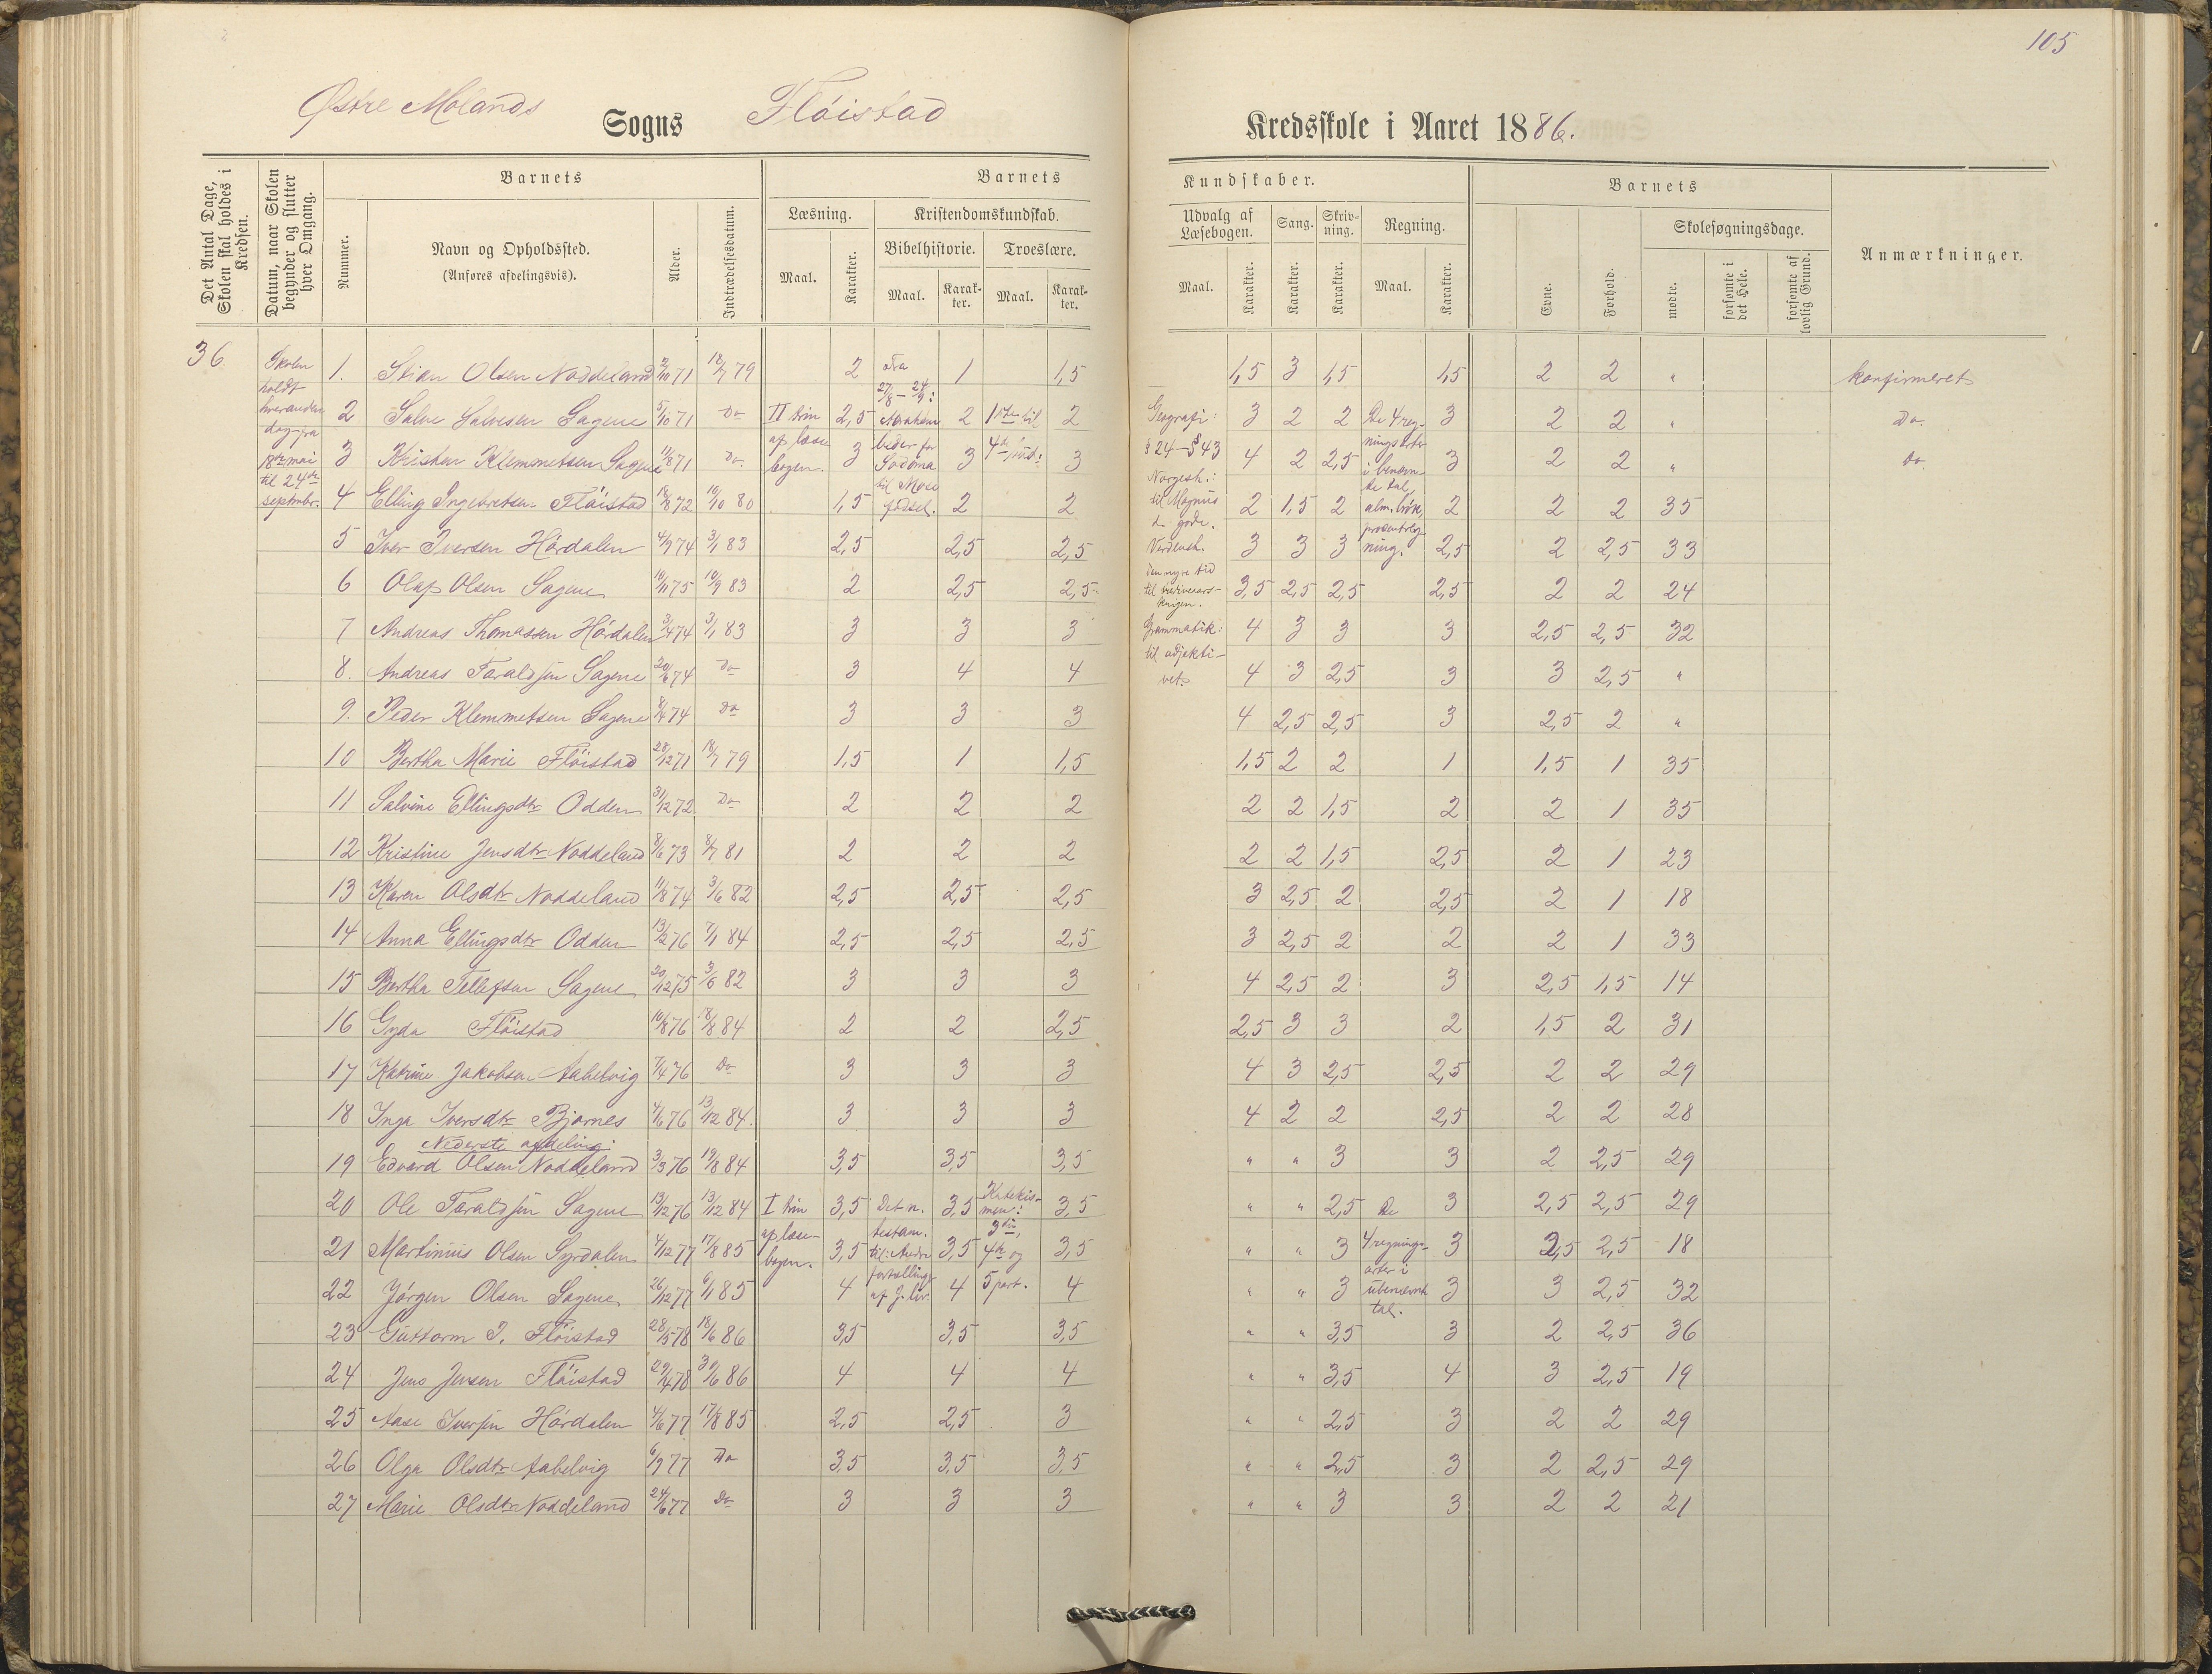 105
Østre Molands Sogns Flöistad Kredsskole i Aaret 1886.
Det Antal Dage, Skolen skal holdes i Kredsen.
Datum, naar Skolen begynder og slutter hver Omgang.
Barnets
Nummer.
Navn og Opholdssted.
(Anføres afdelingsvis).
Alder.
Indtrædelsesdatum.
Barnets
Læsning.
Maal.
Karakter.
Kristendomskundskab.
Bibelhistorie.
Maal.
Karakter.
Troeslære.
Maal.
Karakter.
Kundskaber.
Udvalg af Læsebogen.
Maal.
Karakter.
Sang.
Karakter.
Skrivning.
Karakter.
Regning.
Maal.
Karakter.
Barnets
Evne.
Forhold.
Skolesøgningsdage.
mødte.
forsømte i det Hele.
forsømte af lovlig Grund.
Anmærkninger.
36
Skolen
holdt
hveranden
dag fra
18de mai
til 24de
septmbr.
1. Stian Olsen Noddeland 2/10 71 18/7 79 2 1 1,5 1,5 3 1,5 1,5 2 2 " konfirmeret
2 Salve Salvesen Sagene 5/10 71 Do 2,5 2 2 3 2 2 3 2 2 " Do.
3 Kristen Klemmetsen Sagene 11/8 71 Do. 3 3 3 4 2 2,5 3 2 2 " Do.
4 Elling Ingebretsen Flöistad 18/8 72 10/10 80 1,5 2 2 2 1,5 2 2 2 2 35
5 Iver Iversen Hördalen 4/9 74 3/1 83 2,5 2,5 2,5 3 3 3 2,5 2 2,5 33
6 Olaf Olsen Sagene 10/11 75 10/9 83 2 2,5 2,5 3,5 2,5 2,5 2,5 2 2 24
7 Andreas Thomassen Hördalen 3/4 74 3/1 83 3 3 3 4 3 3 3 2,5 2,5 32
8. Andreas Taraldsen Sagene 20/6 74 Do 3 4 4 4 3 2,5 3 3 2,5 "
9. Peder Klemmetsen Sagene 8/4 74 Do 3 3 3 4 2,5 2,5 3 2,5 2 "
10 Bertha Marie Flöistad 28/12 71 18/7 79 1,5 1 1,5 1,5 2 2 1 1,5 1 35
11 Salvine Ellingsdtr Odden 31/12 72 Do 2 2 2 2 2 1,5 2 2 1 35
12 Kristine Jensdtr Noddeland 8/6 73 8/7 81 2 2 2 2 2 1,5 2,5 2 1 23
13 Karen Olsdtr Noddeland 11/8 74 3/6 82 2,5 2,5 2,5 3 2,5 2 2,5 2 1 18
14 Anna Ellingsdtr Odden 13/2 76 7/1 84 2,5 2,5 2,5 3 2,5 2 2 2 1 33
15 Bertha Tellefsen Sagene 20/12 75 3/6 82 3 3 3 4 2,5 2 3 2,5 1,5 14
16 Gyda Flöistad 10/8 76 18/8 84 2 2 2,5 2,5 3 3 2 1,5 2 31
17 Katrine Jakobsen Aabelvig 7/4 76 Do 3 3 3 4 3 2,5 2,5 2 2 29
18 Inga Iversdtr Bjornes 4/6 76 13/12 84. 3 3 3 4 2 2 2,5 2 2 28
Nederste afdeling:
19 Edvard Olsen Noddeland 3/3 76 19/8 84 3,5 3,5 3,5 " " 3 3 2 2,5 29
20 Ole Taraldsen Sagene 13/12 76 13/12 84 3,5 3,5 3,5 " " 2,5 3 2,5 2,5 29
21 Martinius Olsen Syrdalen 4/12 77 17/8 85 3,5 3,5 3,5 " " 3 3 2,5 2,5 18
22 Jörgen Olsen Sagene 26/12 77 6/1 85 4 4 4 " " 3 3 3 2,5 32
23 Guttorm I. Flöistad 28/5 78 18/6 86 3,5 3,5 3,5 " " 3,5 3 2 2,5 36
24 Jens Jensen Flöistad 29/4 78 30/6 86 4 4 4 " " 3,5 4 3 2,5 19
25 Aase Iversen Hördalen 4/6 77 17/8 85 2,5 2,5 3 " " 2,5 3 2 2 29
26 Olga Olsdtr Aabelvig 6/9 77 Do 3,5 3,5 3,5 " " 2,5 3 2 2,5 29
27 Marie Olsdtr Noddeland 24/6 77 Do 3 3 3 " " 3 3 2 2 21
II trin
af læse
bogen.
Fra
27/8 – 24/9:
Abraham
beder for
Sodoma
til Mose
födsel.
1ste til
4de bud:
Geografi:
§ 24 – § 43
Norgesh.:
til Magnus
d. gode.
Verdensh.
den nye tid
Grammatik:
til adjekti-
vet.
De 4 reg-
ningsarter
i benævn-
te tal,
alm. brök,
procentreg-
ning.
I trin
af læse-
bogen.
Det n.
testam.
til: Andre
fortællinger
af J. liv.
Katekis-
men:
3die,
4de og
5 part.
De
4 regnings-
arter i
ubenævnte
tal.